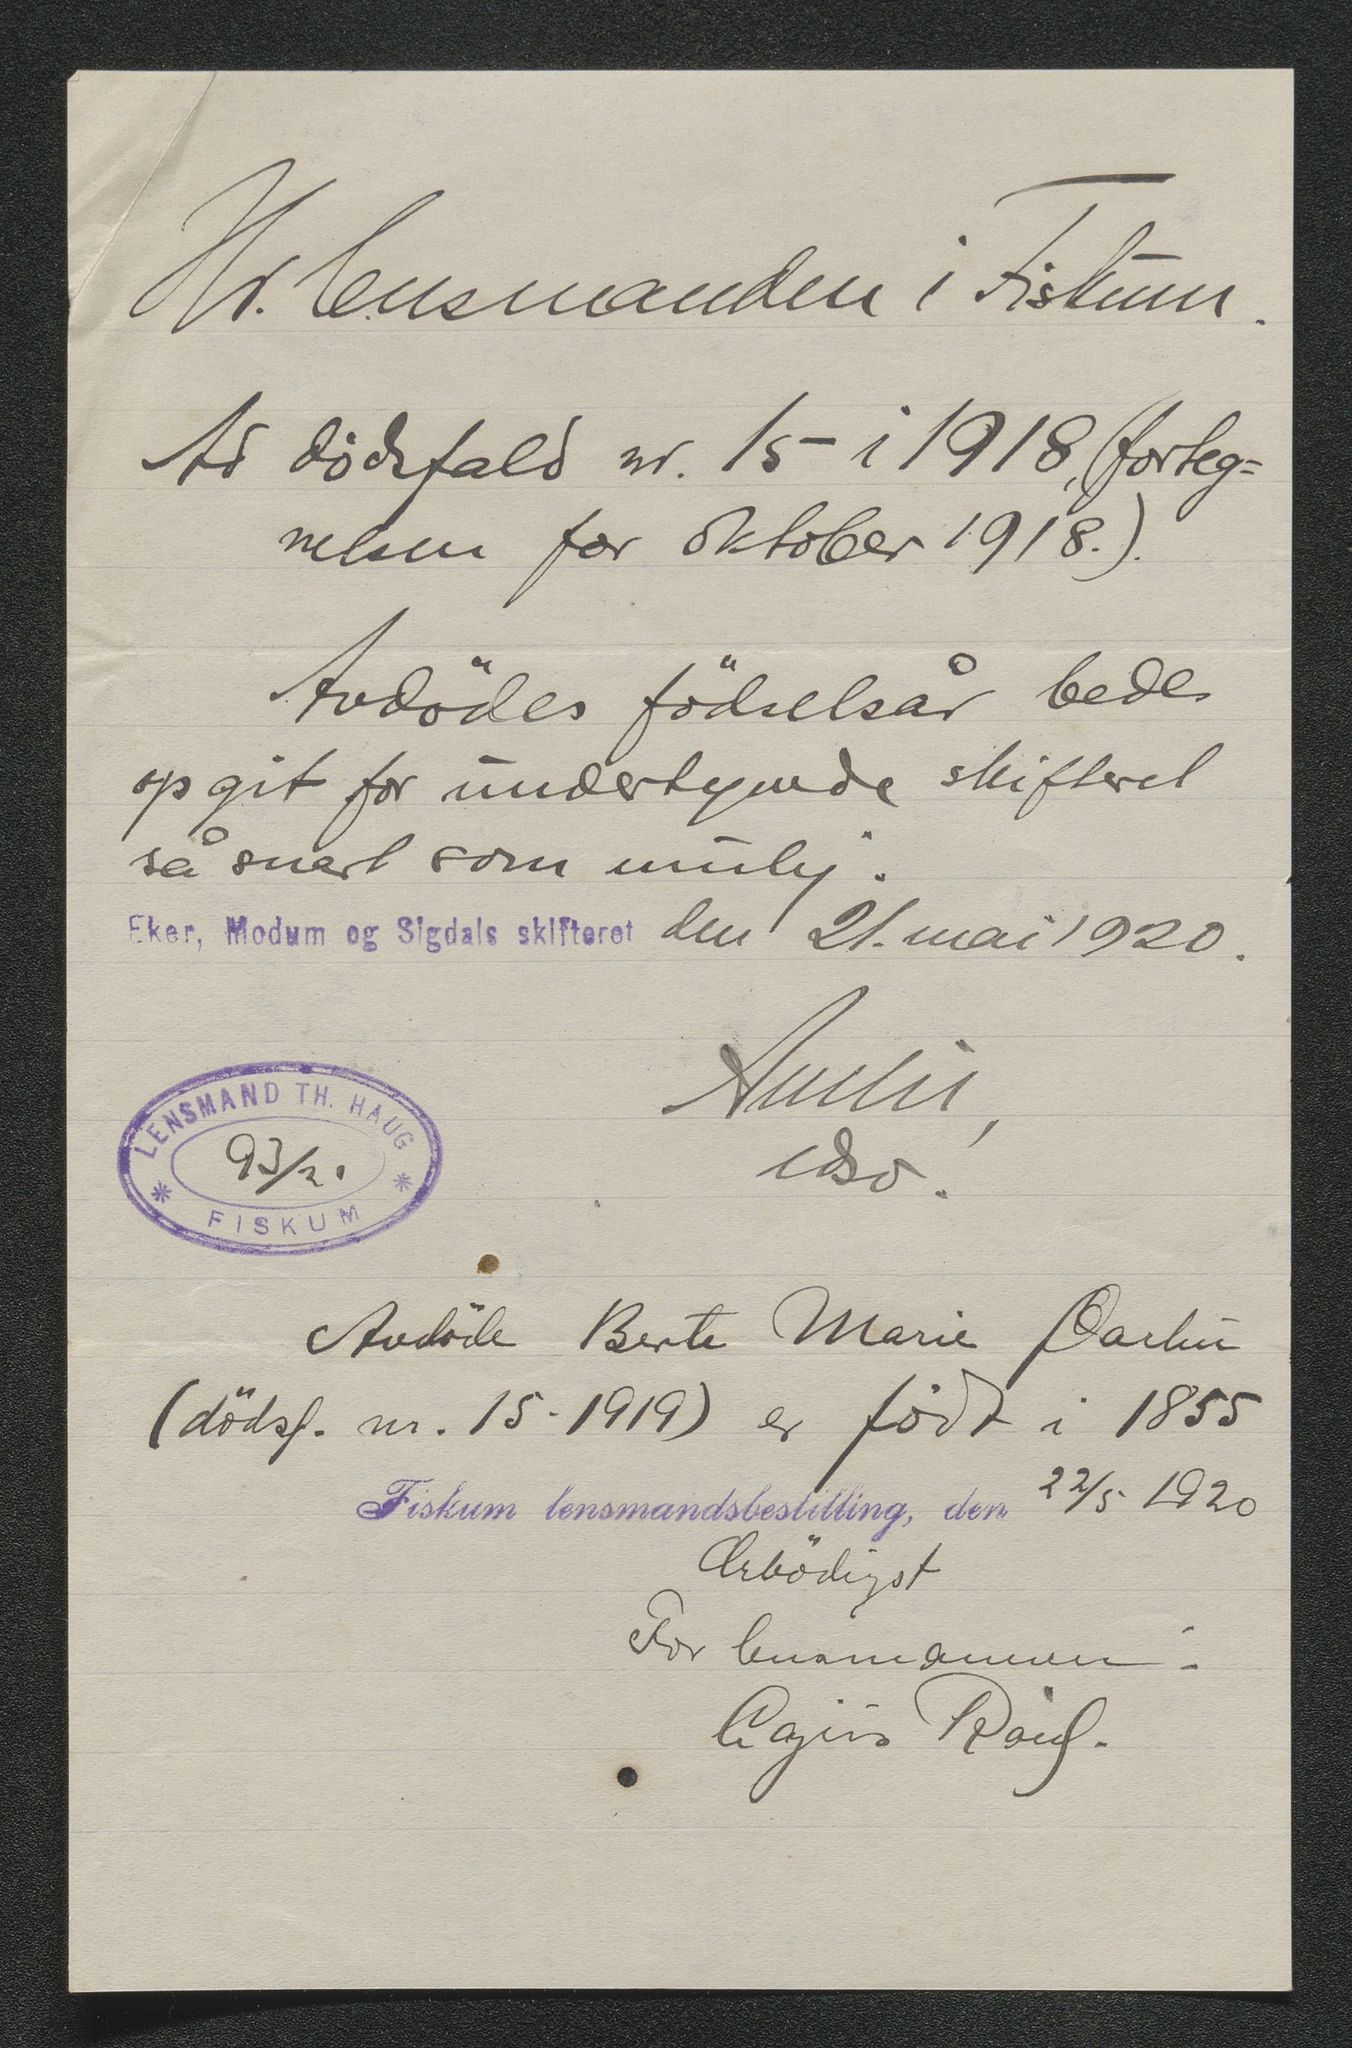 Hr. lensmanden i Fiskum.
Ad dödsfald nr. 15 i 1918, (forteg=
nelsen for oktober 1918.).
Avdödes födselsår bedes
opgit for undertegnede skifteret
så snart som mulig.
Eker, Modum og Sigdals skifteret den 21. mai 1920.
LENSMAND TH. HAUG
93/20
FISKUM
Avdöde Berte Marie
(dödsf. nr. 15-1919) er födt i 1855
Fiskum lensmandsbestilling, den 22/5 1920
Ærbödigst
For lensmannen: